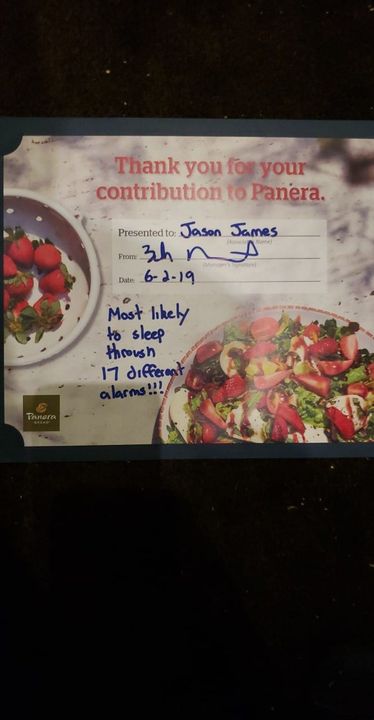 Thank you for your
contribution to Panera.
Presented to: Jason James
(Associate Name)
From:
(Manager's Signature)
Date: 6-2-19
Most likely
to sleep
through
17 different
alarms!!!
Panera
BREAD